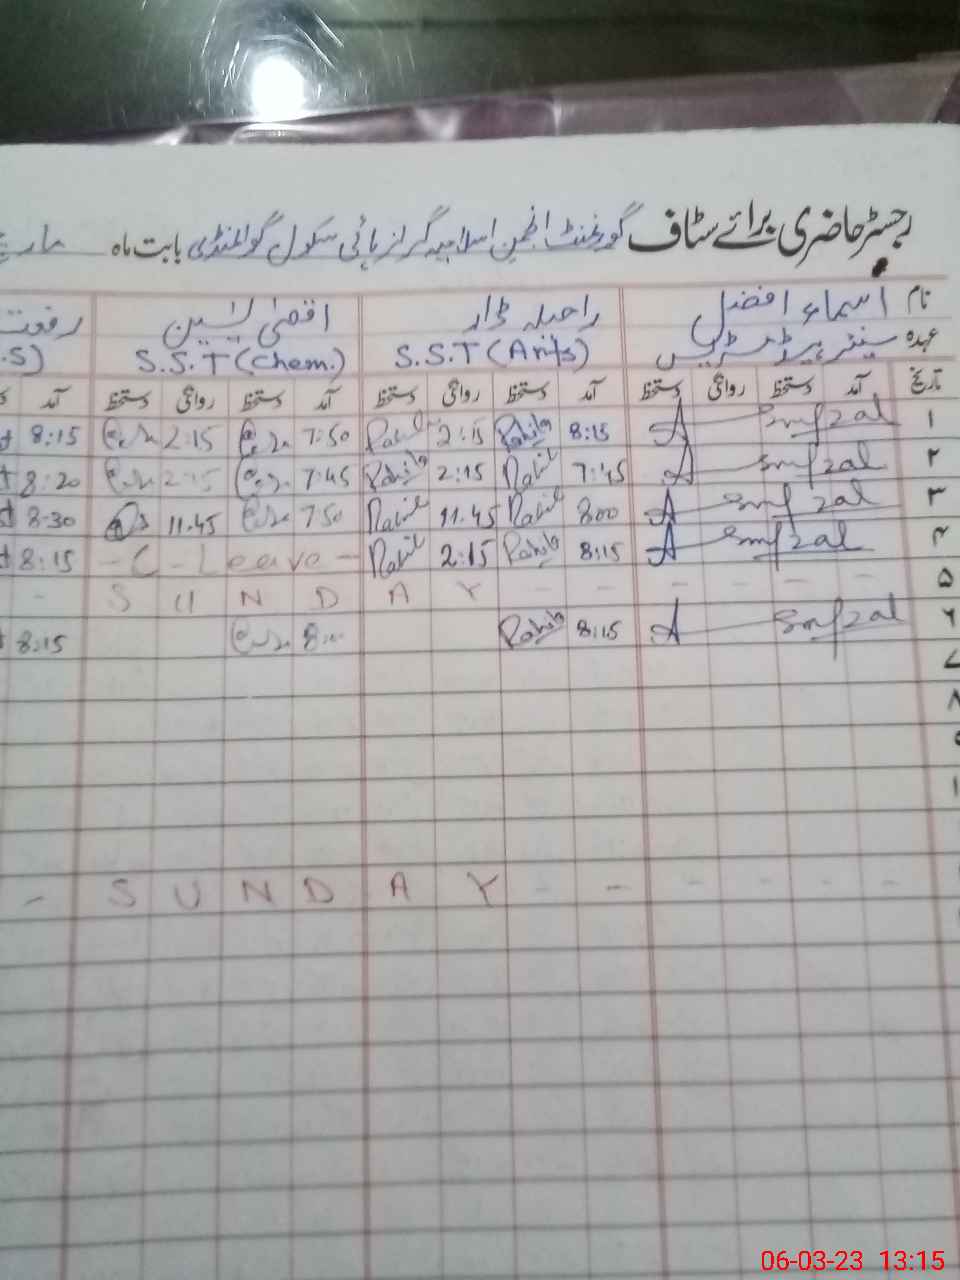 رجسٹر حاضری برائے سٹاف گورنمنٹ انجمن اسلامیہ گرلز ہائی سکول گوالمنڈی بابت ماہ
نام اسماء افضل راحیلہ ڈار اقصٰی یٰسین رفعت
عہدہ سینئر ہیڈمسٹریس S.S.T (Arts) S.S.T (Chem.) .S)
تاریخ آمد دستخط روانگی دستخط آمد دستخط روانگی دستخط آمد دستخط روانگی دستخط آمد
۱ Smfzal A 8:15 Rahila 2:15 Rahila 7:50 2:15 8:15
۲ Smfzal A 7:45 Rahila 2:15 Rahila 7:45 2:15 8:20
۳ Smfzal A 8:00 Rahila 11.45 Rahila 7:50 11.45 8:30
۴ Smfzal A 8:15 Rahila 2:15 Rahila - C - Leave - 8:15
۵ - - - - - - S U N D A Y -
۶ Smfzal A 8:15 Rahila 8:00 8:15
۷
۸
S U N D A Y - - - - - -
06-03-23 13:15